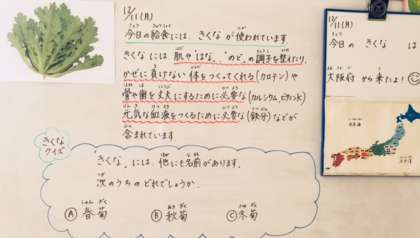 12/11(月)
今日の給食には、きくなが使われています
きくなには 肌やはな、のど、の調子を整えたり、
かぜに負けない体をつくってくれる(カロテン)や
骨や歯を丈夫にするために必要な(カルシウム,ビタミンK)
元気な血液をつくるために必要な(鉄分)などが
含まれています
きくな
クイズ
きくな、には、他にも名前があります。
次のうちのどれでしょうか。
Ⓐ 春菊 Ⓑ 秋菊 Ⓒ 冬菊
12/11(月)
今日の きくな は
大阪府 から来たよ!